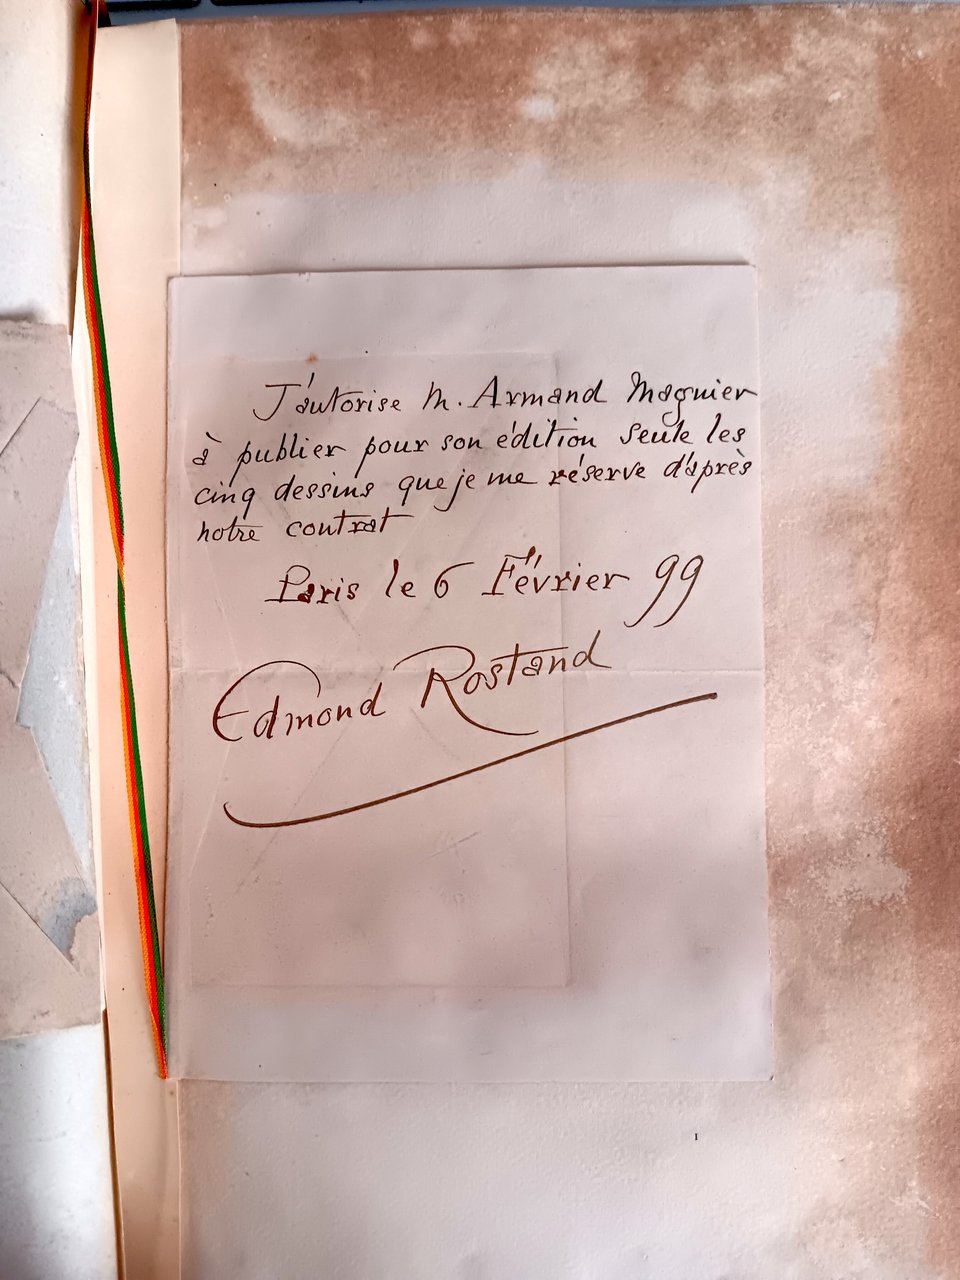 J'autorise M. Armand Magnier
à publier pour son édition seule les
cinq dessins que je me réserve d'après
notre contrat
Paris le 6 Février 99
Edmond Rostand
1